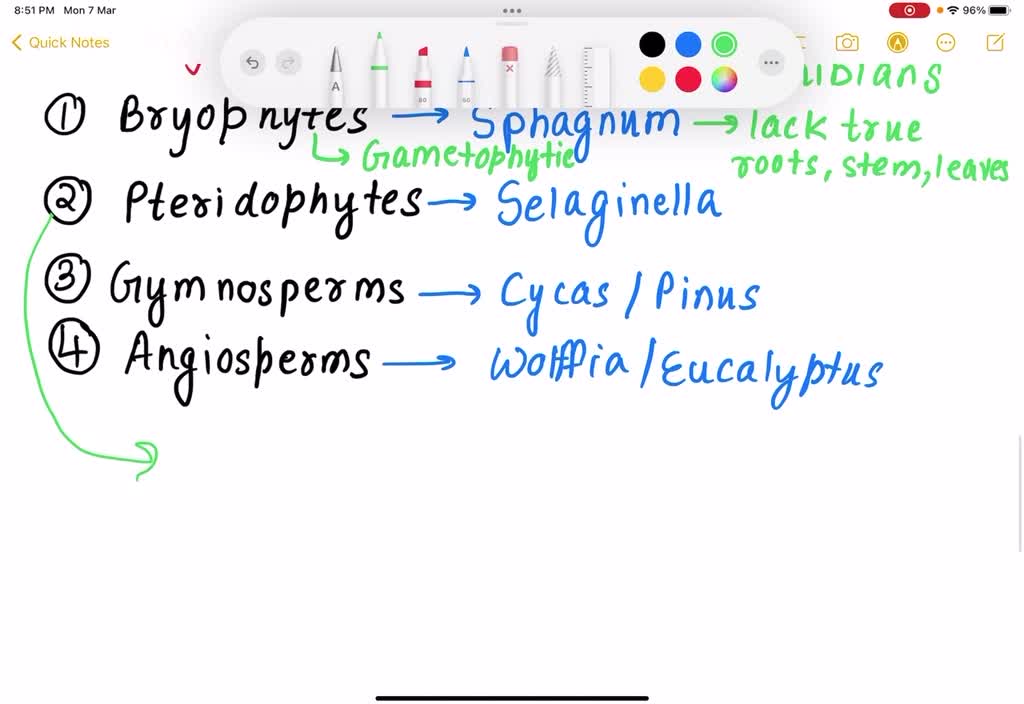 8:51 PM Mon 7 Mar 96%
Quick Notes
A 80 50
① Bryophytes → Sphagnum → lack true
↳ Gametophytic roots, stem, leaves
② Pteridophytes → Selaginella
③ Gymnosperms → Cycas / Pinus
④ Angiosperms → Wolffia / Eucalyptus